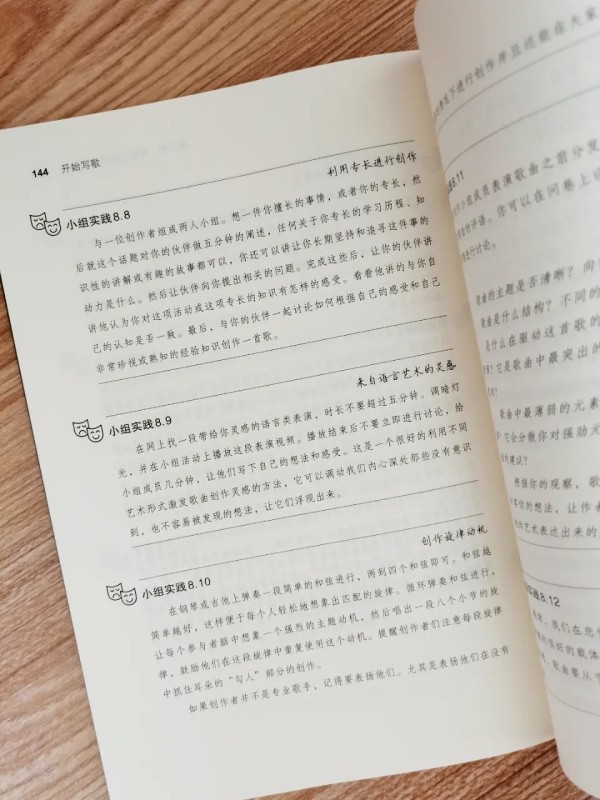 144 开始写歌
利用专长进行创作
小组实践8.8
与一位创作者组成两人小组。想一件你擅长的事情，或者你的专长，然
后就这个话题对你的伙伴做五分钟的阐述，任何关于你专长的学习历程、知
识性的讲解或有趣的故事都可以，你还可以讲让你长期坚持和追寻这件事的
动力是什么。然后让伙伴向你提出相关的问题。完成这些后，让你的伙伴讲
讲他认为你对这项活动或这项专长的知识有怎样的感受。看看他讲的与你自
己的认知是否一致。最后，与你的伙伴一起讨论如何根据自己的感受和自己
非常珍视或熟知的经验知识创作一首歌。
来自语言艺术的灵感
小组实践8.9
在网上找一段带给你灵感的语言类表演，时长不要超过五分钟。调暗灯
光，并在小组活动上播放这段表演视频。播放结束后不要立即进行讨论，给
小组成员几分钟，让他们写下自己的想法和感受。这是一个很好的利用不同
艺术形式激发歌曲创作灵感的方法，它可以调动我们内心深处那些没有意识
到，也不容易被发现的想法，让它们浮现出来。
创作旋律动机
小组实践8.10
在钢琴或吉他上弹奏一段简单的和弦进行，两到四个和弦即可。和弦越
简单越好，这样便于每个人轻松地想象出匹配的旋律。循环弹奏和弦进行，
让每个参与者脑中想象一个强烈的主题动机，然后唱出一段八个小节的旋
律，鼓励他们在这段旋律中重复使用这个动机。提醒创作者们注意每段旋律
中抓住耳朵的“勾人”部分的创作。
如果创作者并不是专业歌手，记得要表扬他们。尤其是表扬他们在没有
情况下进行创作并且还能在大家
8.11
小组成员表演歌曲之前分发
评语。你可以在问卷上设
进行讨论。
歌曲的主题是否清晰？向
歌曲是什么结构？不同的
是什么在驱动这首歌的
它是歌曲中最突出的
歌曲中最薄弱的元素
它会分散你对强劲元
的建议？
根据你的观察，歌
事你的想法，让作
的艺术表达出来的
实践8.12
我们在您
很好的载体
歌曲要从